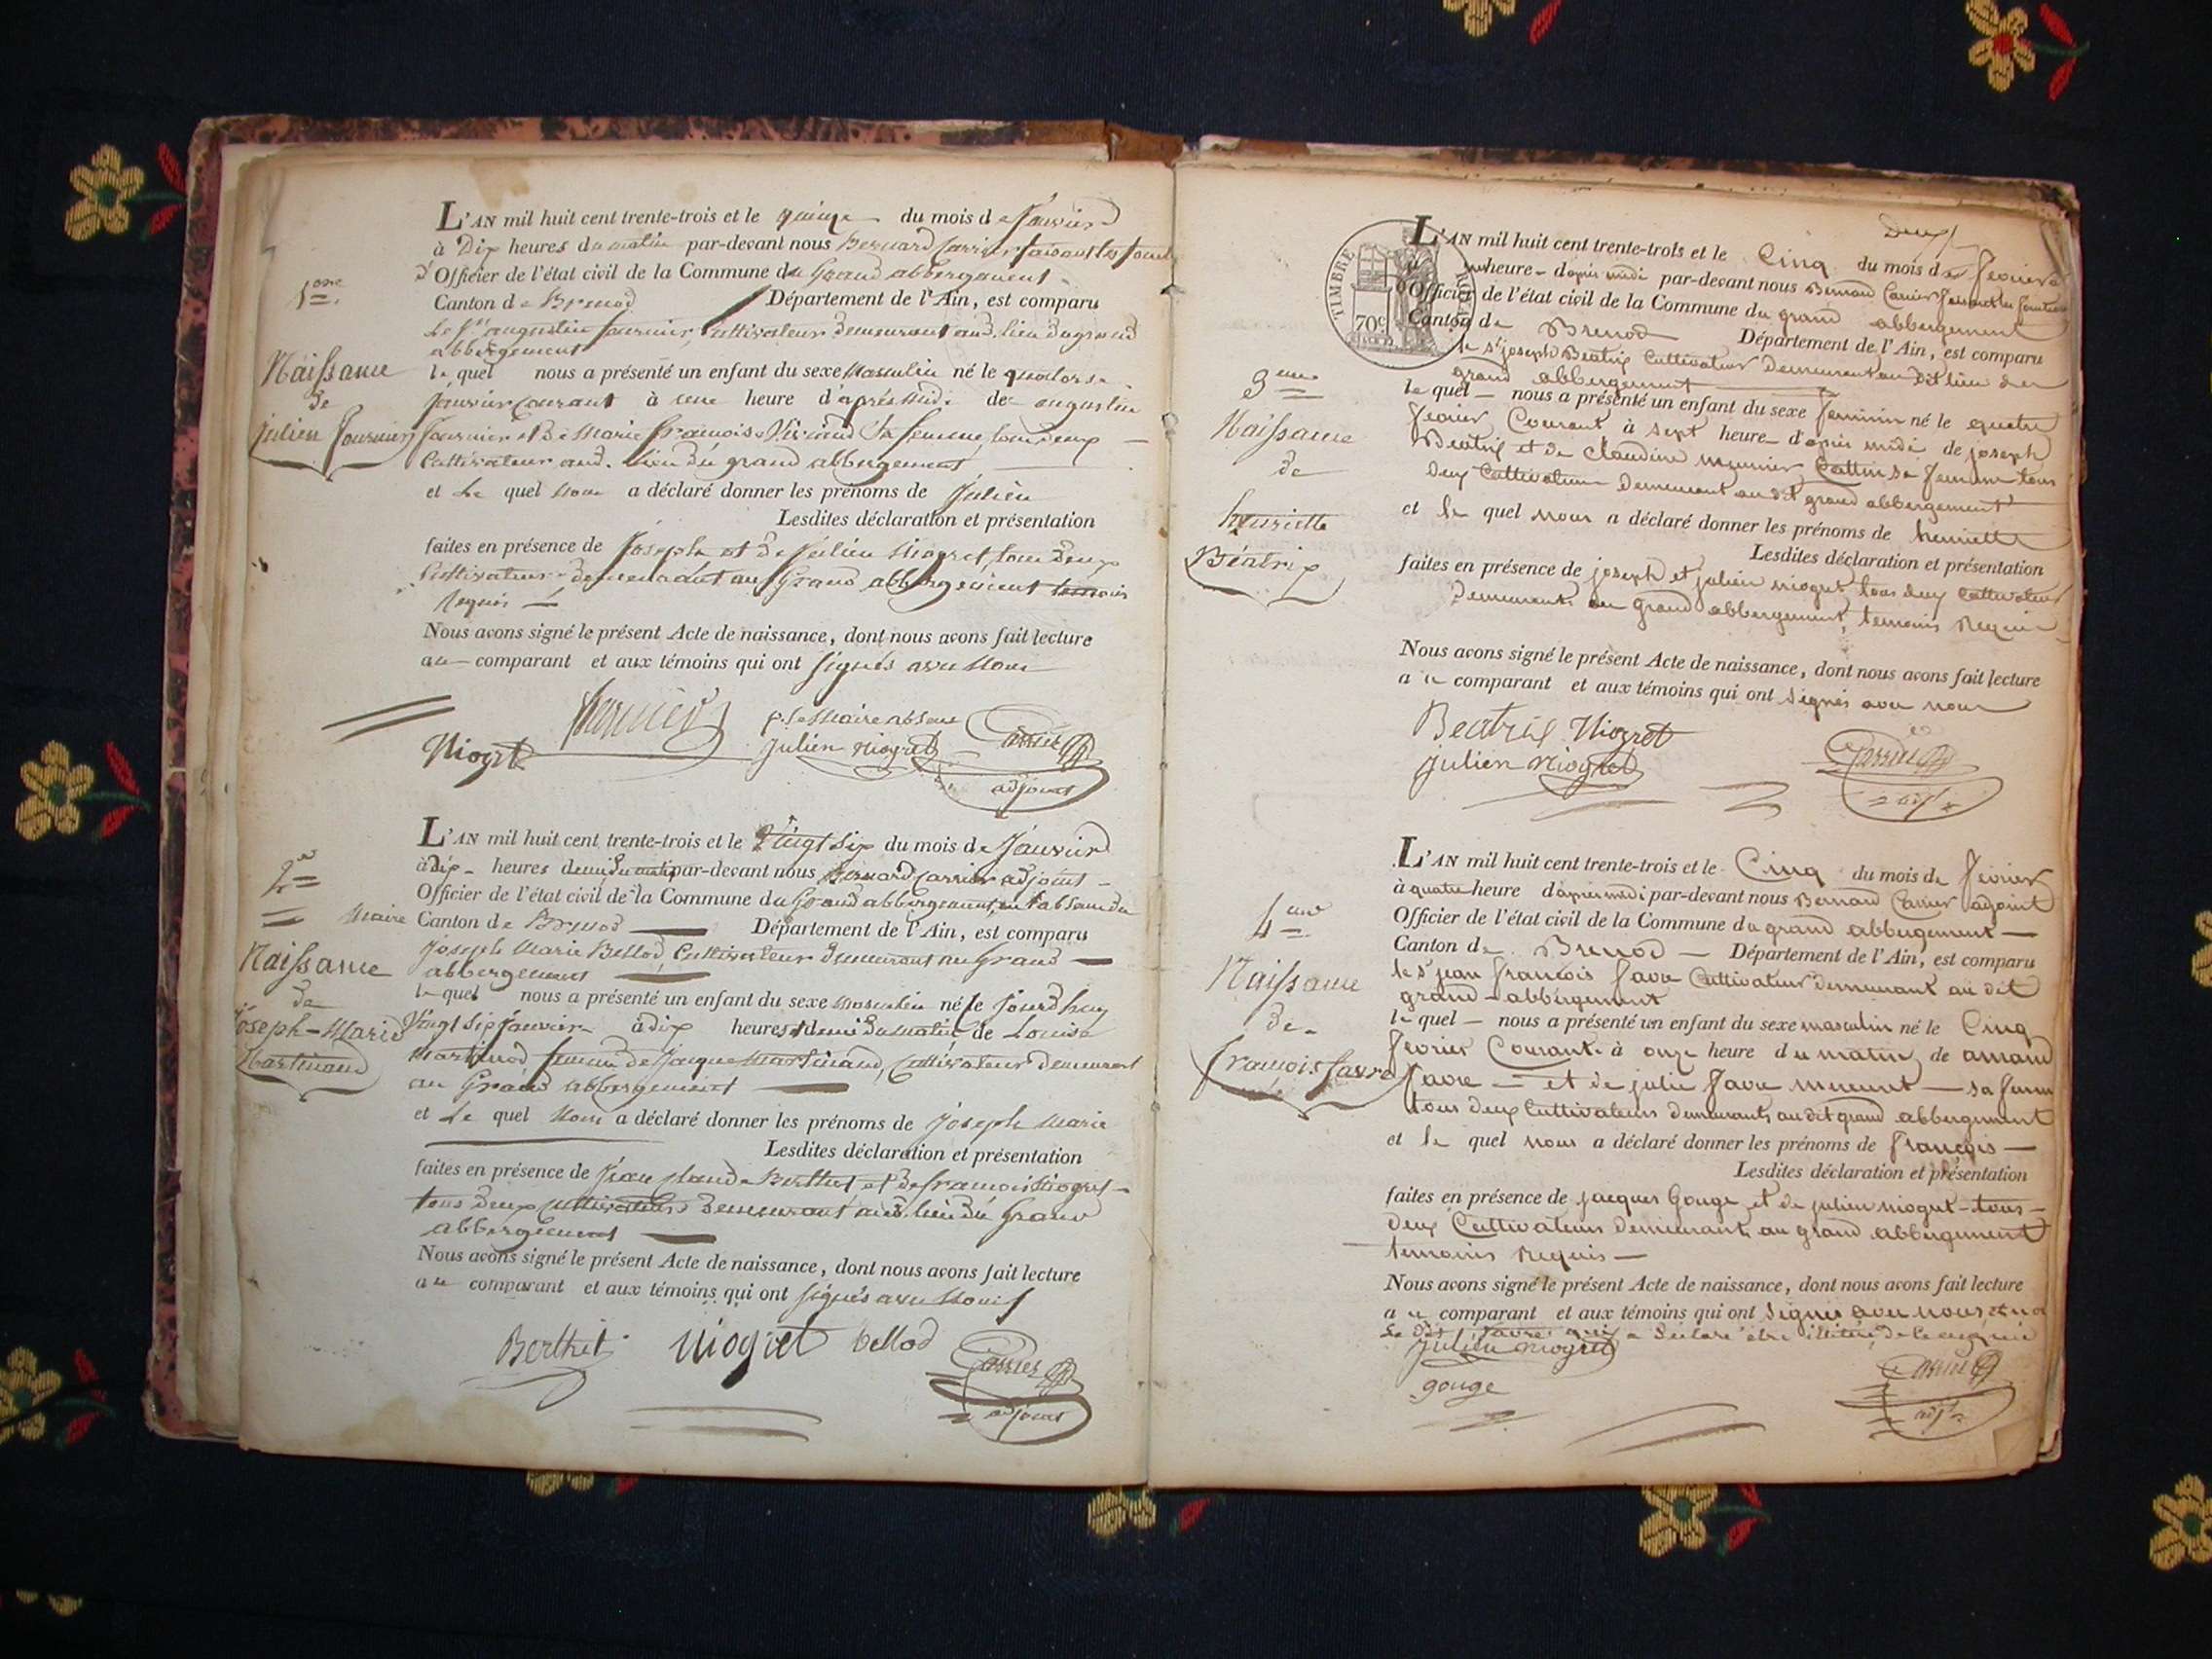 L'AN mil huit cent trente-trois et le quinze du mois de Janvier
à Dix heures du matin par-devant nous Bernard Carrier faisant les fonct
d'Officier de l'état civil de la Commune du Grand abbergement
Canton de Brenod Département de l'Ain, est comparu
Le Sr augustin fournier, Cultivateur demeurant aud. lieu du grand
abbergement
le quel nous a présenté un enfant du sexe Masculin né le quatorze
Janvier Courant à une heure d'après midi de augustin
fournier & De Marie françoise sa femme, tous deux
Cultivateur aud. lieu du grand abbergement
et Le quel Nous a déclaré donner les prénoms de Julien
Lesdites déclaration et présentation
faites en présence de Joseph et De Julien Niogret, tous deux
Cultivateur demeurant au Grand abbergement temoins
requis
Nous avons signé le présent Acte de naissance, dont nous avons fait lecture
au comparant et aux témoins qui ont signés avec Nous
1ere
Naissance
de
Julien Fournier
fournier
p. le Maire absent
Niogret
Julien Niogret
Carrier
adjoint
L'AN mil huit cent trente-trois et le Vingt Six du mois de Janvier
à dix heures demi du matin par-devant nous Bernard Carrier adjoint
Officier de l'état civil de la Commune du Grand abbergement, en l'absence du
Maire Canton de Brenod Département de l'Ain, est comparu
Joseph Marie Bellod, Cultivateur Demeurant au Grand
abbergement
le quel nous a présenté un enfant du sexe masculin né le Jourd'huy
Vingt Six Janvier à dix heures & demi du matin de Louise
Martinod femme de Jacque Martinand, Cultivateur demeurant
au Grand abbergement
et Le quel Nous a déclaré donner les prénoms de Joseph Marie
Lesdites déclaration et présentation
faites en présence de Jean Claude Berthet et de françois Niogret
tous deux cultivateurs Demeurant aud. lieu du Grand
abbergement
Nous avons signé le présent Acte de naissance, dont nous avons fait lecture
au comparant et aux témoins qui ont signés avec Nous
2e
Naissance
de
Joseph-Marie
Martinand
Berthet
Niogret
bellod
Carrier
adjoint
Deux
TIMBRE ROYAL
70c
L'AN mil huit cent trente-trois et le Cinq du mois de fevrier
heure d'après midi par-devant nous Bernard Carrier faisant les fonctions
Officier de l'état civil de la Commune du grand abbergement
Canton de Brenod Département de l'Ain, est comparu
le Sr joseph Beatrix Cultivateur Demeurant au Dit lieu de
grand abbergement
le quel nous a présenté un enfant du sexe feminin né le quatre
fevrier Courant à sept heure d'après midi de joseph
Beatrix et de Claudine meunier Cattin sa femme tous
deux Cultivateur Demeurant au dit grand abbergement
et le quel nous a déclaré donner les prénoms de henriette
Lesdites déclaration et présentation
faites en présence de joseph et julien niogret tous deux cultivateur
Demeurants au grand abbergement, temoins Requis
Nous avons signé le présent Acte de naissance, dont nous avons fait lecture
au comparant et aux témoins qui ont signés avec nous
3eme
Naissance
de
henriette
Béatrix
Beatrix Niogret
Julien Niogret
Carrier
adjt
L'AN mil huit cent trente-trois et le Cinq du mois de fevrier
à quatre heure d'après midi par-devant nous Bernard Carrier adjoint
Officier de l'état civil de la Commune du grand abbergement
Canton de Brenod Département de l'Ain, est comparu
le Sr jean françois favre Cultivateur demeurant au dit
grand abbergement
le quel nous a présenté un enfant du sexe masculin né le Cinq
fevrier Courant à onze heure du matin, de amand
favre et de julie favre sa femme
tous deux Cultivateurs demeurants au dit grand abbergement
et le quel nous a déclaré donner les prénoms de françois
Lesdites déclaration et présentation
faites en présence de jacques Gouge et de julien niogret tous
deux Cultivateurs demeurant au grand abbergement
temoins requis
Nous avons signé le présent Acte de naissance, dont nous avons fait lecture
au comparant et aux témoins qui ont signés avec nous
le dit favre qui a Declaré être illitéré de le
4eme
Naissance
de
françois favre
Julien Niogret
gouge
Carrier
adjt